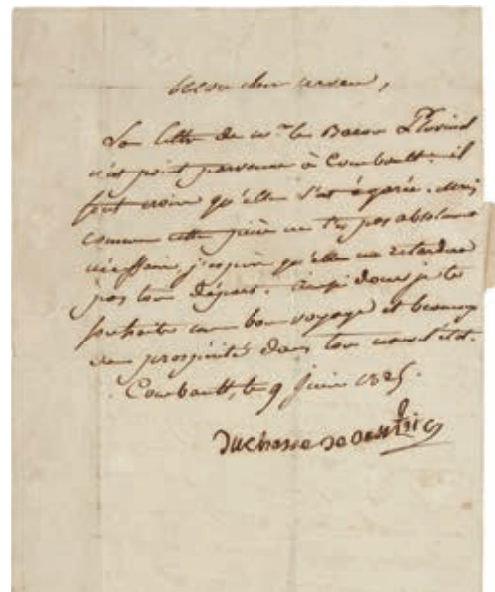 mon cher neveu,
La lettre de mr le Baron
n'est point parvenue à Combault. il
faut croire qu'elle s'est égarée. mais
comme cette pièce ne t'es pas absolument
nécessaire, j'espère qu'elle ne retardera
pas ton départ. ainsi donc je te
souhaite un bon voyage et beaucoup
de prospérité dans ton nouvel état.
Combault, le 9 Juin 1825.
Duchesse de